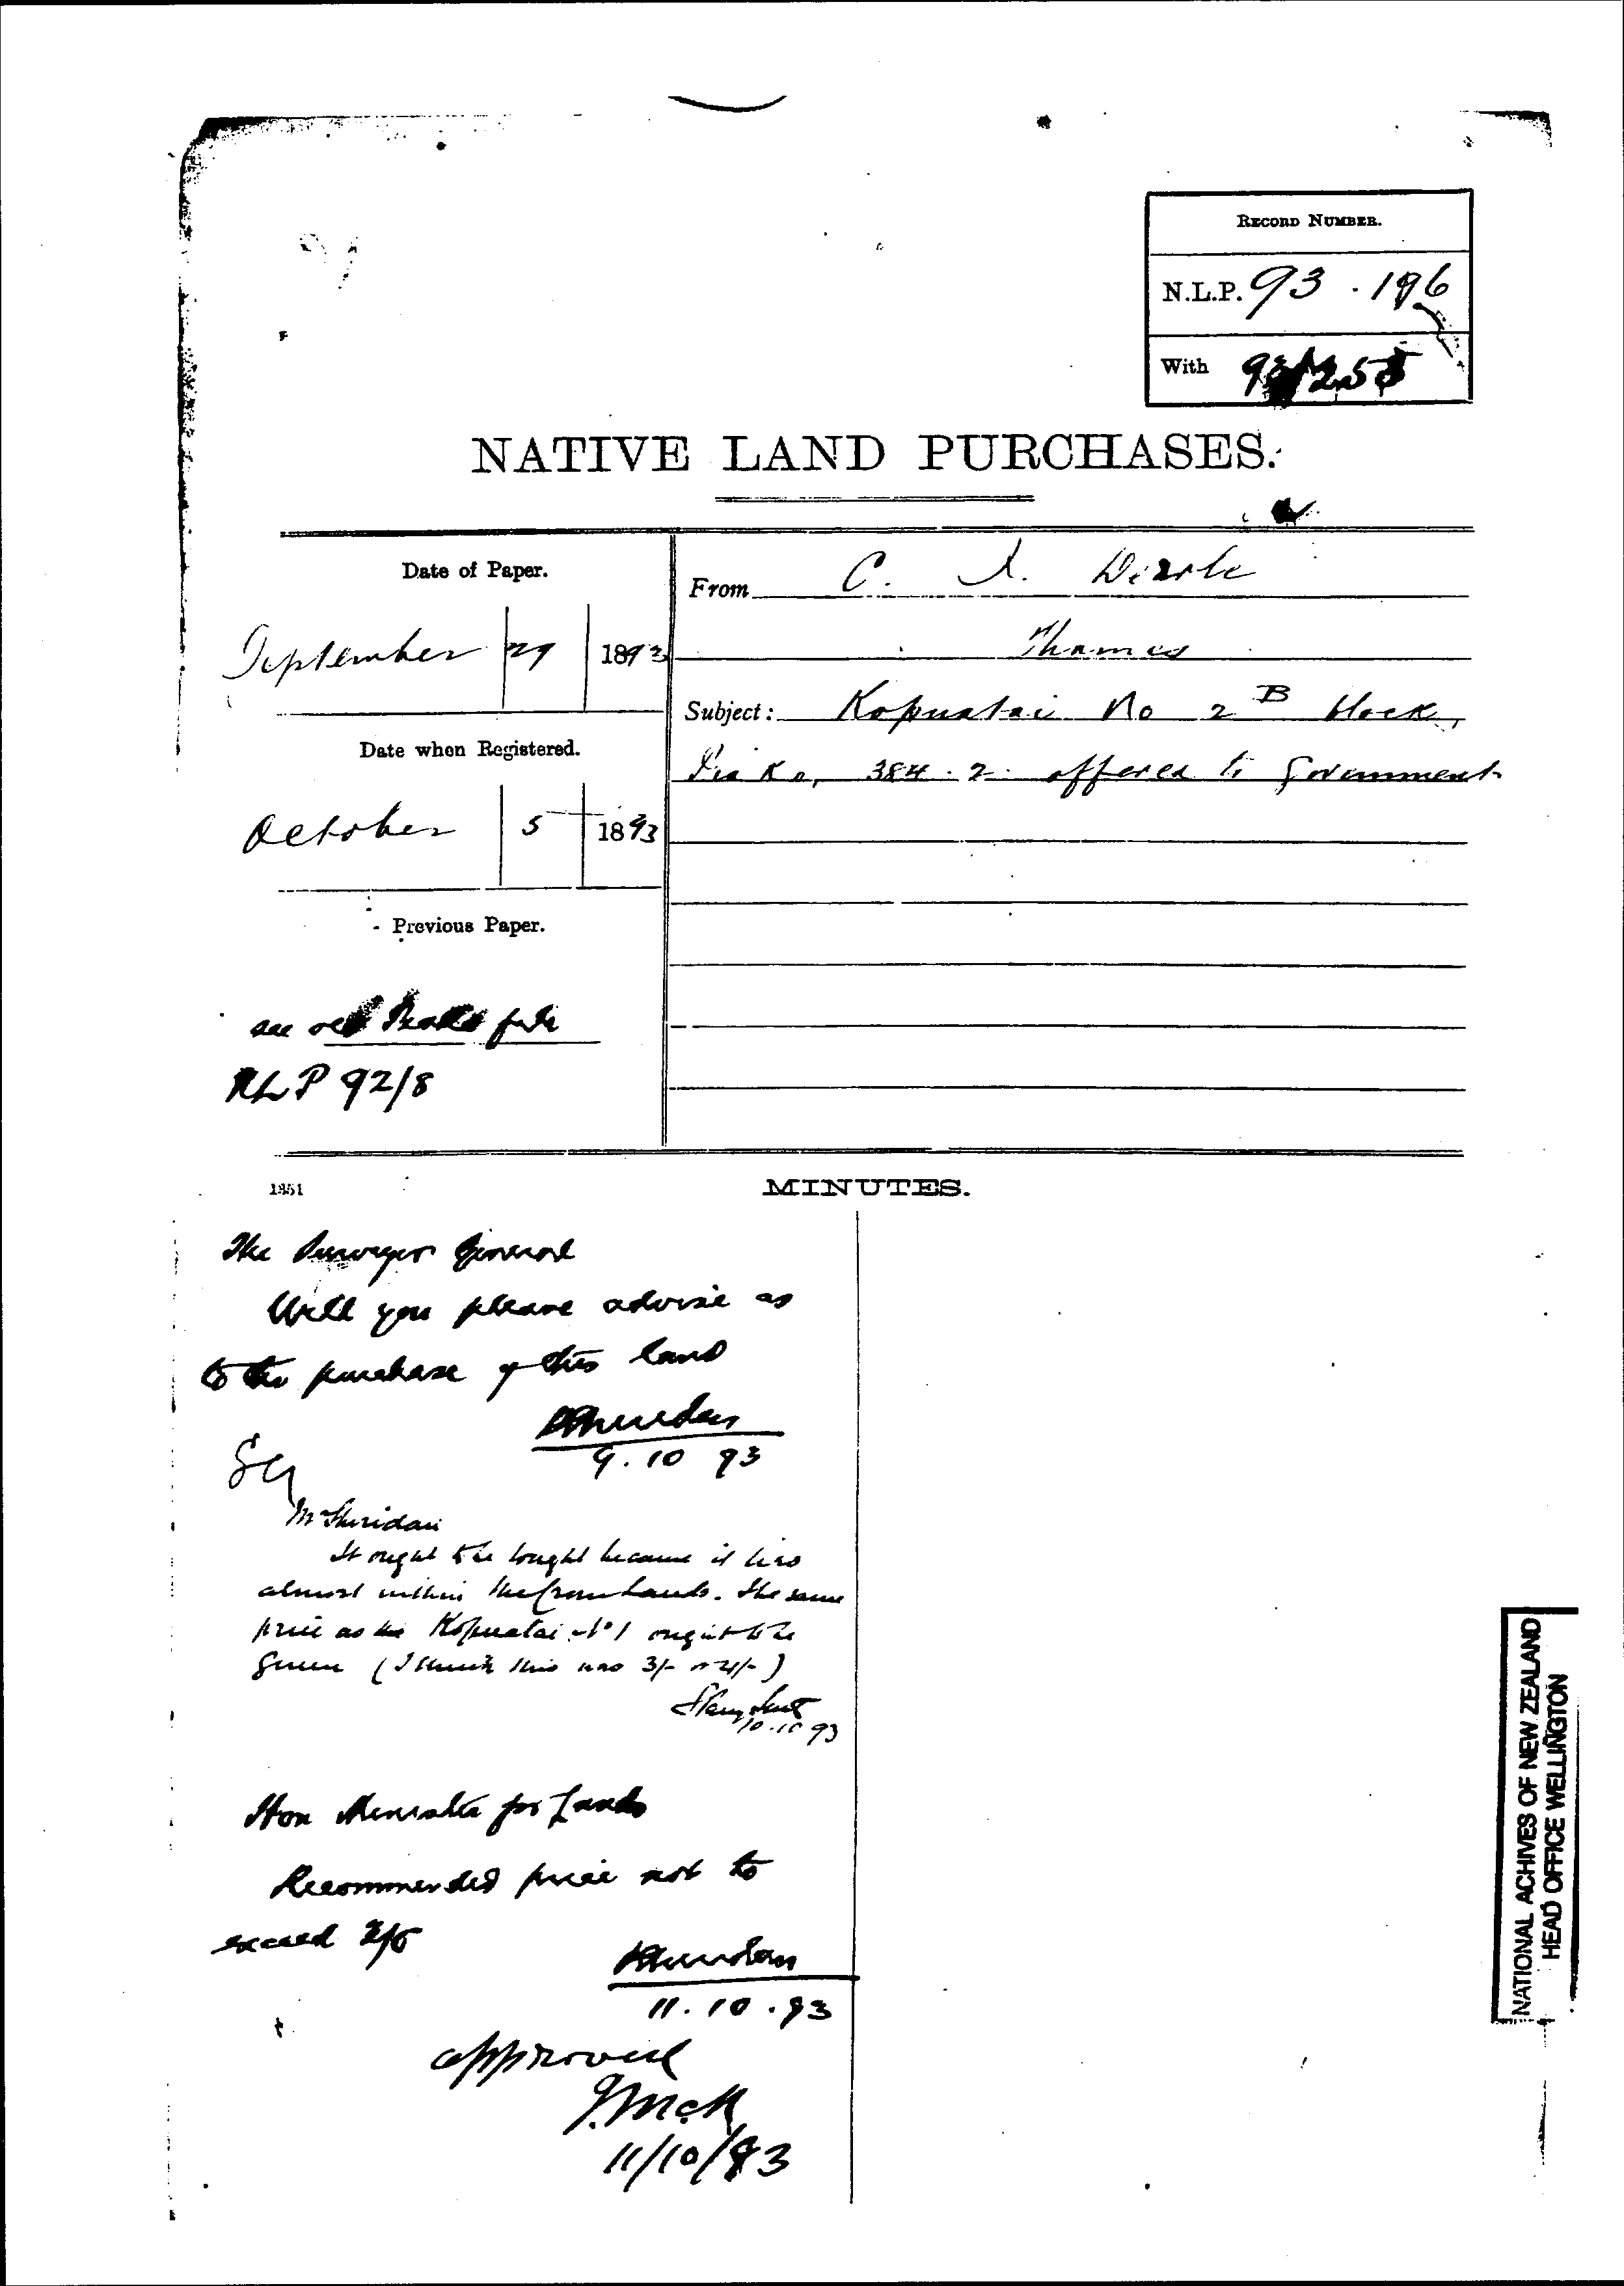 RECORD NUMBER.
N.L.P. 93 . 196
With 93/255
NATIVE LAND PURCHASES.
Date of Paper.
September 29 1893
Date when Registered.
October 5 1893
Previous Paper.
see old file
NLP 92/8
From C.
Thames
Subject: Kopuatai No 2 B block,
Piako, 384 . 2 . offered to Government
1351
MINUTES.
The Surveyor General
Will you please advise as
to the purchase of this land
PSheridan
9.10 93
SG
Mr Sheridan
It ought to be bought because it lies
almost within the Crown Lands. The same
price as the Kopuatai No 1 ought to be
given (I think this was 3/- or 4/-)
10.10 93
Hon Minister for Lands
Recommended price not to
exceed
PSheridan
11.10.93
approved
J.McK
11/10/93
NATIONAL ACHIVES OF NEW ZEALAND
HEAD OFFICE WELLINGTON